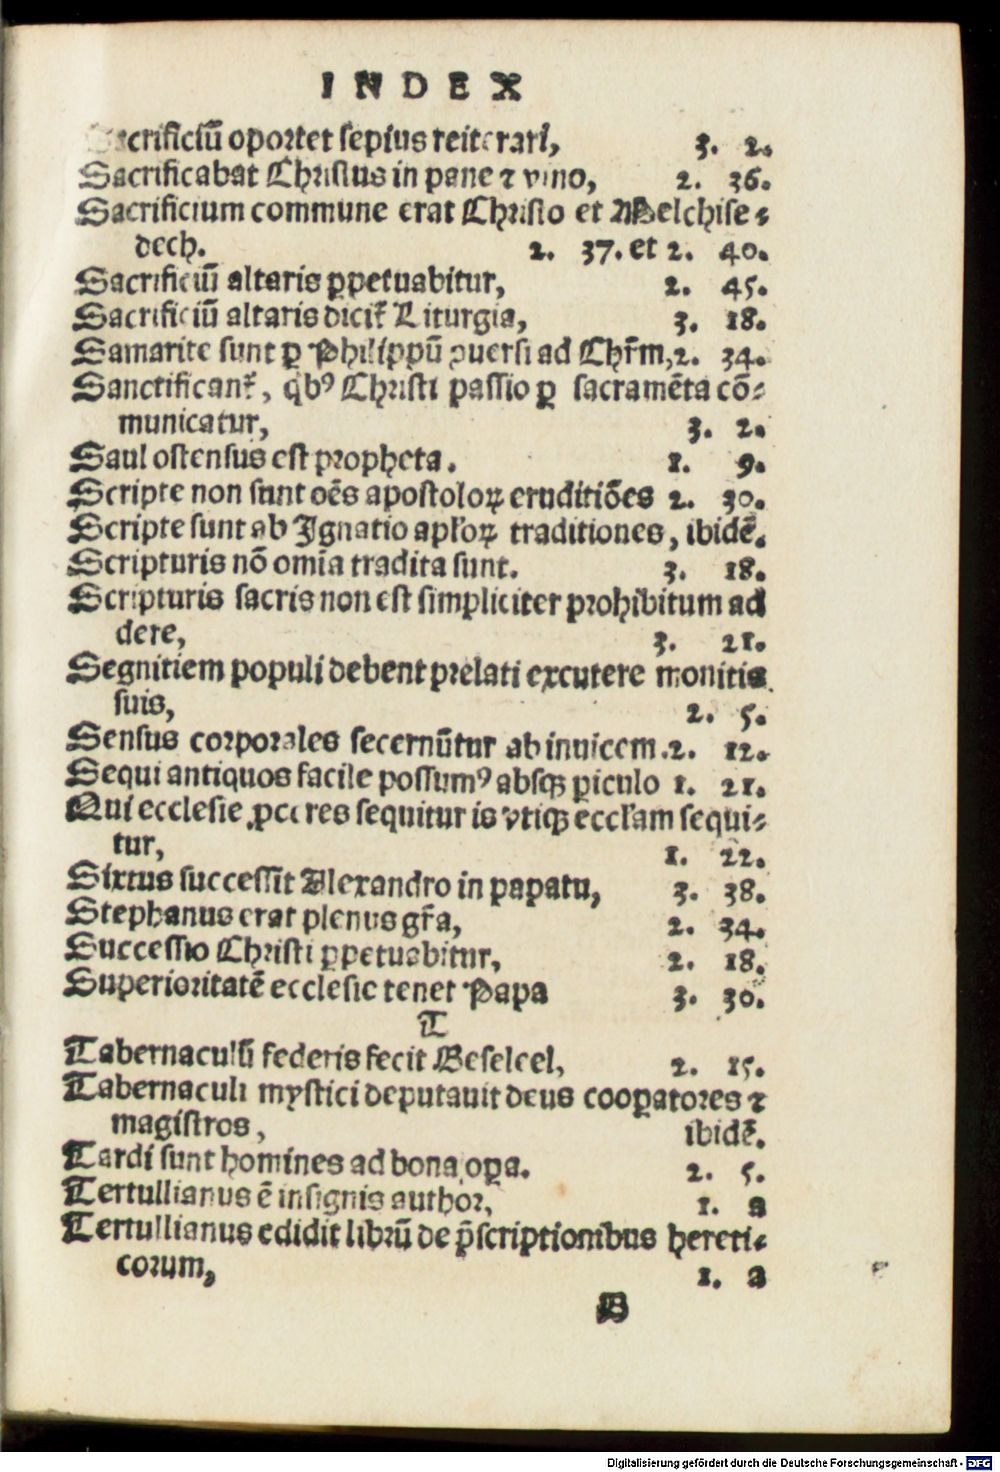 INDEX
Sacrificiū oportet sepius reiterari, 3. 2.
Sacrificabat Christus in pane ⁊ vino, 2. 36.
Sacrificium commune erat Christo et Melchise⸗
dech. 2. 37. et 2. 40.
Sacrificiū altaris ꝑpetuabitur, 2. 45.
Sacrificiū altaris dicit᷑ Liturgia, 3. 18.
Samarite sunt ꝑ Philippū ꝯuersi ad Chr̄m, 2. 34.
Sanctificant᷑, qb⁹ Christi passio ꝑ sacramēta cō⸗
municatur, 3. 2.
Saul ostensus est propheta. 1. 9.
Scripte non sunt oēs apostoloꝝ eruditiōes 2. 30.
Scripte sunt ab Ignatio apl'oꝝ traditiones, ibidē.
Scripturis nō omia tradita sunt. 3. 18.
Scripturis sacris non est simpliciter prohibitum ad
dere, 3. 21.
Segnitiem populi debent prelati excutere monitis
suis, 2. 5.
Sensus corporales secernūtur ab inuicem. 2. 12.
Sequi antiquos facile possum⁹ absqꝫ ꝑiculo 1. 21.
Qui ecclesie ꝓceres sequitur is vtiqꝫ eccl'am sequi⸗
tur, 1. 22.
Sixtus successit Alexandro in papatu, 3. 38.
Stephanus erat plenus gr̄a, 2. 34.
Successio Christi ꝑpetuabitur, 2. 18.
Superioritatē ecclesie tenet Papa 3. 30.
T
Tabernaculū federis fecit Beseleel, 2. 15.
Tabernaculi mystici deputauit deus cooꝑatores ⁊
magistros, ibidē.
Tardi sunt homines ad bona oꝑa. 2. 5.
Tertullianus ē insignis author, 1. 2
Tertullianus edidit librū de p̄scriptionibus hereti⸗
corum, 1. 2
B
Digitalisierung gefördert durch die Deutsche Forschungsgemeinschaft - DFG